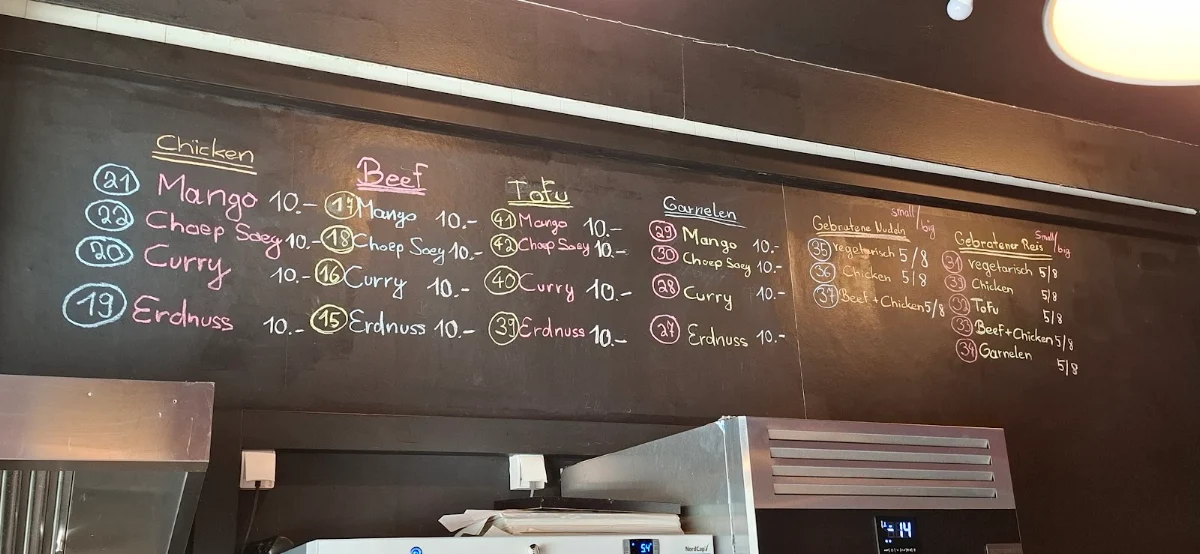 Chicken
21 Mango 10.-
22 Choep Soey 10.-
20 Curry 10.-
19 Erdnuss 10.-
Beef
17 Mango 10.-
18 Choep Soey 10.-
16 Curry 10.-
15 Erdnuss 10.-
Tofu
41 Mango 10.-
42 Choep Soey 10.-
40 Curry 10.-
39 Erdnuss 10.-
Garnelen
29 Mango 10.-
30 Choep Soey 10.-
28 Curry 10.-
27 Erdnuss 10.-
small/big
Gebratene Nudeln
35 vegetarisch 5/8
36 Chicken 5/8
37 Beef+Chicken 5/8
small/big
Gebratener Reis
31 vegetarisch 5/8
Chicken 5/8
Tofu 5/8
33 Beef+Chicken 5/8
34 Garnelen 5/8
14
NordCap